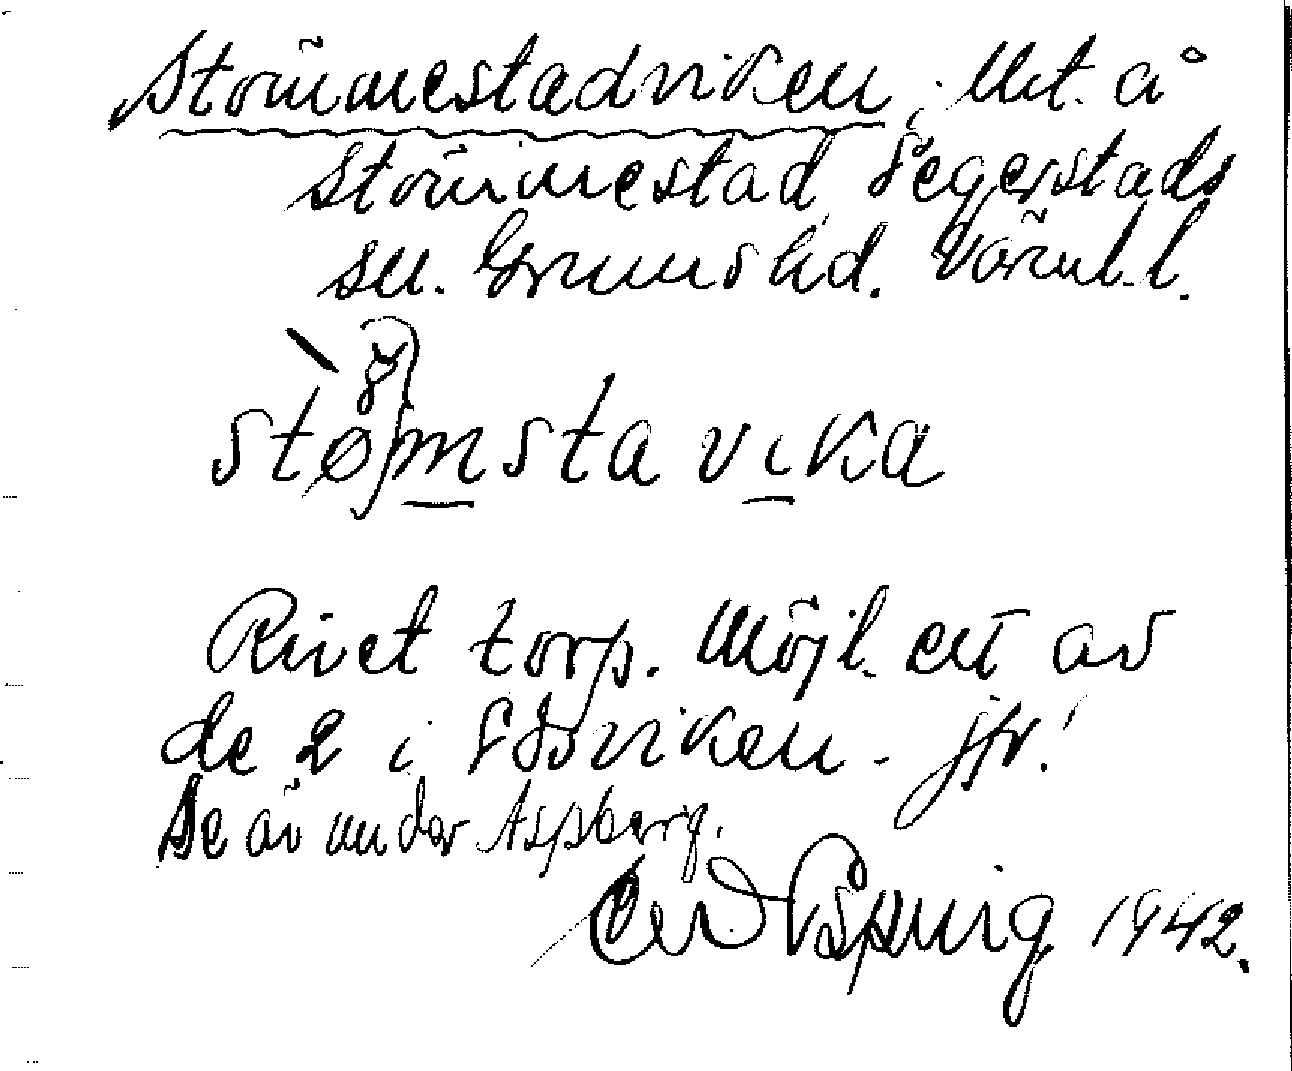 Strömmestadviken, Ut. å
Strömmestad, Segerstads
sn. Grums hd. Värml. l.
stømsta vika
Rivet torp. Möjl. ett av
de 2 i Sörviken - jfr!
Se äv under Aspberg.
1942.